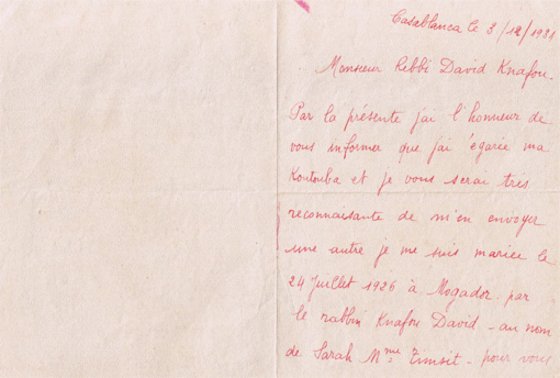 Casablanca le 3/12/1931
Monsieur Rebbi David Knafou.
Par la présente j'ai l'honneur de
vous informer que j'ai égarée ma
Koutouba et je vous serai très
reconnaisante de m'en envoyer
une autre je me suis mariée le
24 Juillet 1926 à Mogador par
le rabbin Knafou David - au nom
de Sarah Mme Zimsit - pour vous